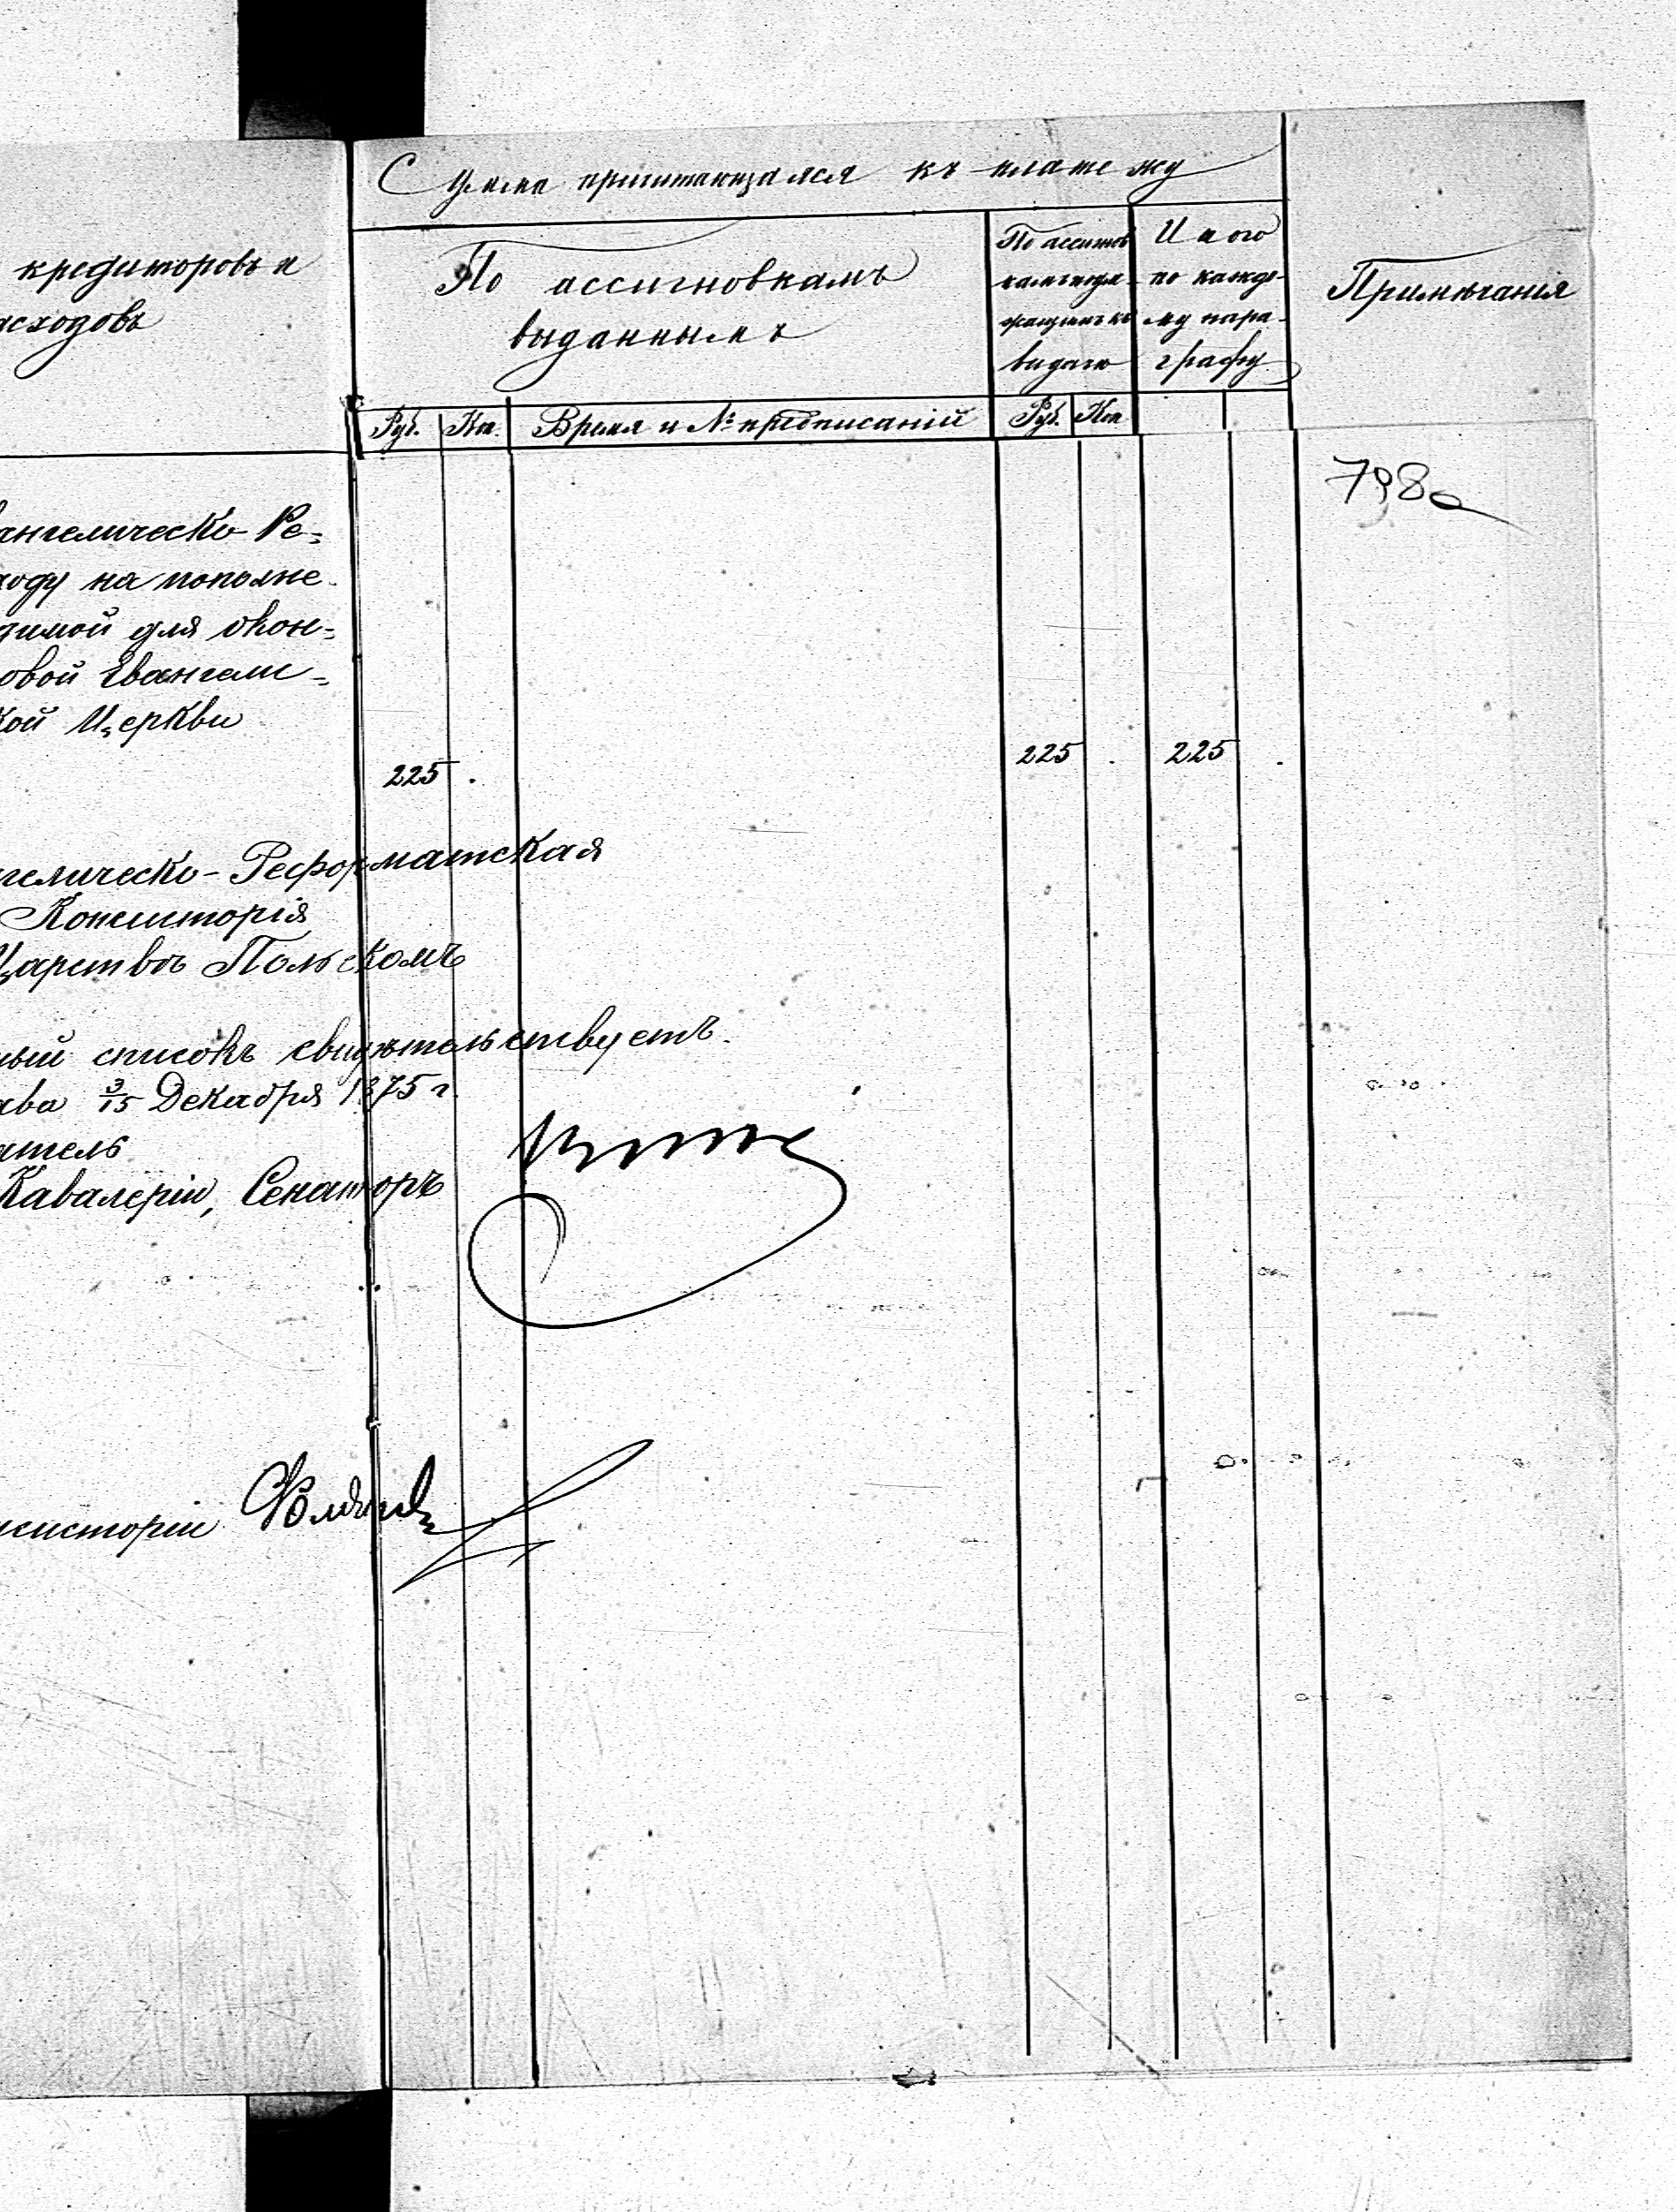 Сумма причитающаяся къ платежу
кредиторовъ и
асходовъ
По ассигновкамъ
выданнымъ
По ассигнов
камъ подле-
жащимъ къ
выдачѣ
Итого
по каждо-
му пара-
графу
Примѣчанія
Руб. Коп. Время и № предписаній Руб. Коп
798а
ангелическо-Ре-
ходу на пополне-
димой для окон-
овой Евангели-
кой Церкви
225 . 225 . 225 .
гелическо-Реформатская
Консисторія
Царствѣ Польскомъ
ный списокъ свидѣтельствуетъ.
ава 3/15 Декабря 1875 г.
атель
Кавалеріи, Сенаторъ
нсисторіи